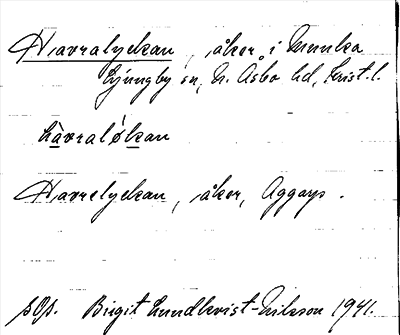 Havralyckan, åker i Munka
Ljungby sn, N. Åsbo hd, Krist. l.
hàvralỳkan
Havrelyckan, åker, Aggarp.
sOp. Birgit Lundkvist-Nilsson 1941.